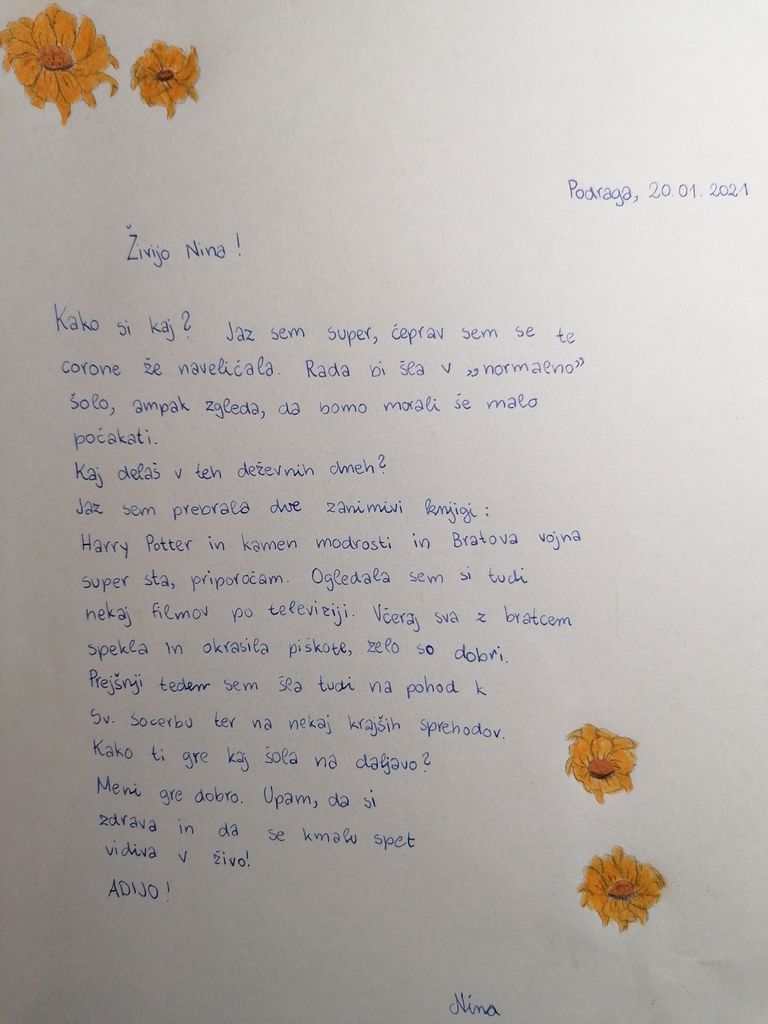 Podraga, 20.01.2021
Živijo Nina!
Kako si kaj? Jaz sem super, čeprav sem se te
corone že naveličala. Rada bi šla v „normalno”
šolo, ampak zgleda, da bomo morali še malo
počakati.
Kaj delaš v teh deževnih dneh?
Jaz sem prebrala dve zanimivi knjigi:
Harry Potter in kamen modrosti in Bratova vojna
super sta, priporočam. Ogledala sem si tudi
nekaj filmov po televiziji. Včeraj sva z bratcem
spekla in okrasila piškote, zelo so dobri.
Prejšnji teden sem šla tudi na pohod k
Sv. Socerbu ter na nekaj krajših sprehodov.
Kako ti gre kaj šola na daljavo?
Meni gre dobro. Upam, da si
zdrava in da se kmalu spet
vidiva v živo!
ADIJO!
Nina